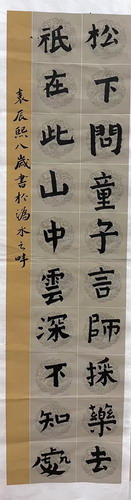 松下問童子言師採藥去
祇在此山中雲深不知處
袁辰熙八歲書於溈水之畔